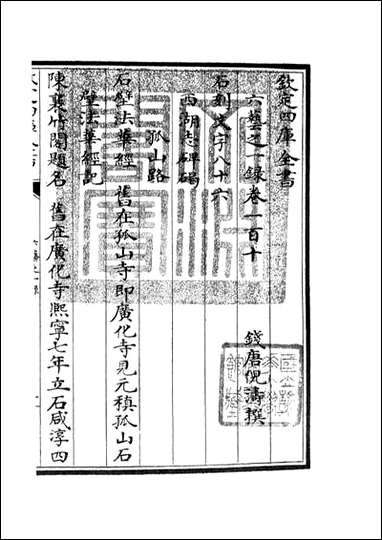 欽定四庫全書
六藝之一録卷一百十
錢唐倪濤撰
石刻文字八十六
西湖志碑碣
孤山路
石壁法華經 舊在孤山寺即廣化寺見元稹孤山石
壁法華經記
陳襄竹閣題名 舊在廣化寺熙寧七年立石咸淳四